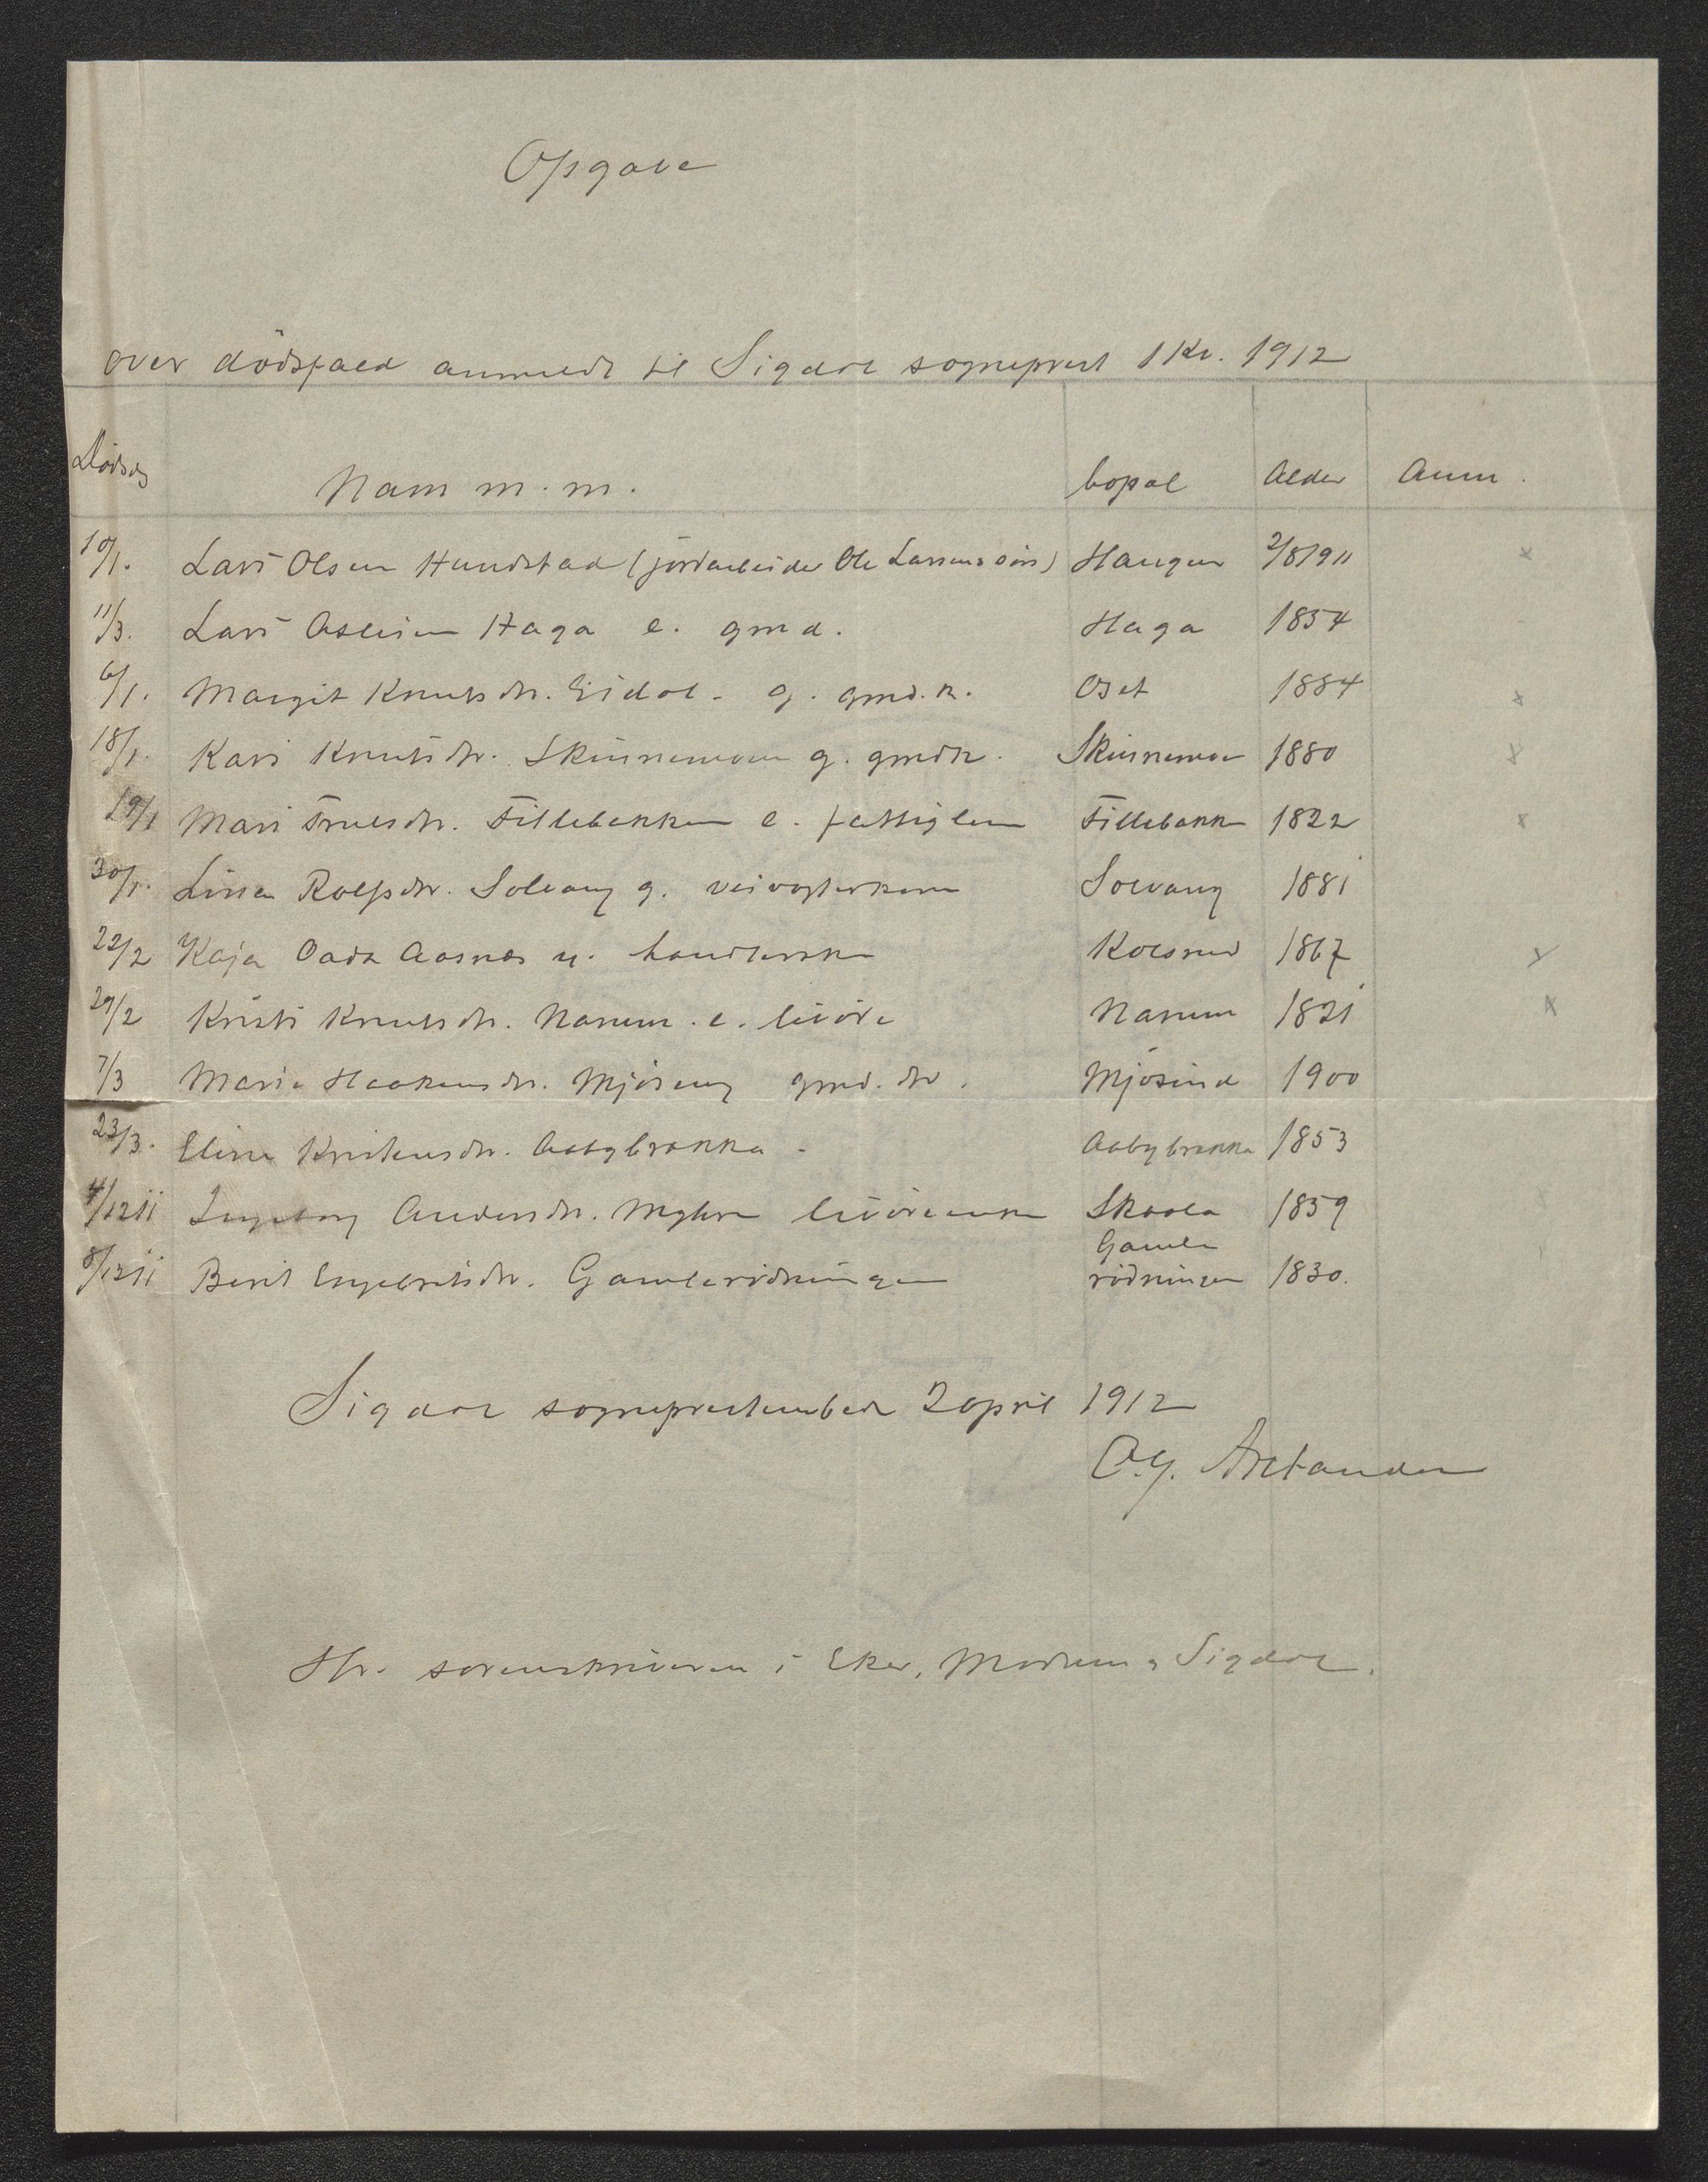 Opgave
over dödsfald anmeldt til Sigdal sogneprest 1 Kv. 1912
Dödsdg Navn m.m. bopæl Alder Anm.
10/1. Lars Olsen Hundstad (jordarbeider Ole Larsens sön) Haugen 2/8 1911 x
11/3. Lars Aslesen Haga e. gmd. Haga 1854
6/1. Margit Knutsdtr. Eidal - g. gmd.k. Oset 1884 x
18/1. Kari Knutsdtr. Skinnemoen g. gmdk. Skinnemoen 1880 x
19/1 Mari Truesdtr. Fillebakken e. fattiglem Fillebakk 1822 x
30/1. Lina Rolfsdtr. Solvang g. veivogterkone Solvang 1881
22/2 Kaja Oada Aasnæs u. handlerske Kolsrud 1867 x
29/2 Kristi Knutsdtr. Narum. e. livöre Narum 1821 x
7/3 Maria Haakensdtr. Mjöseng gmd. dtr. Mjösund 1900
23/3. Eline Kristensdtr. Aabybrakka - Aabybrakka 1853
4/12 11 Ingeborg Andersdtr. Myhre livöreenke Skaala 1859
8/12 11 Berit Engebretsdtr. Gamlerödningen Gamle
rödningen 1830.
Sigdal sogneprestembede 2 april 1912
O.G. Arctander
Hr. sorenskriveren i Eker, Modum & Sigdal.